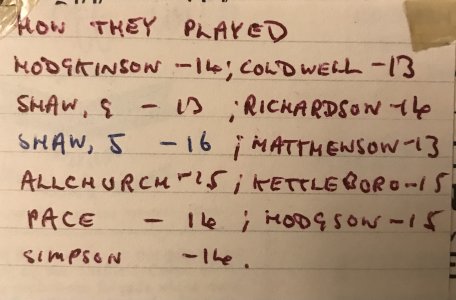 HOW THEY PLAYED
HODGKINSON - 14; COLDWELL - 13
SHAW, G - 13 ; RICHARDSON - 14
SHAW, J - 16 ; MATTHEWSON - 13
ALLCHURCH - 15 ; KETTLEBORO - 15
PACE - 14 ; HODGSON - 15
SIMPSON - 14.